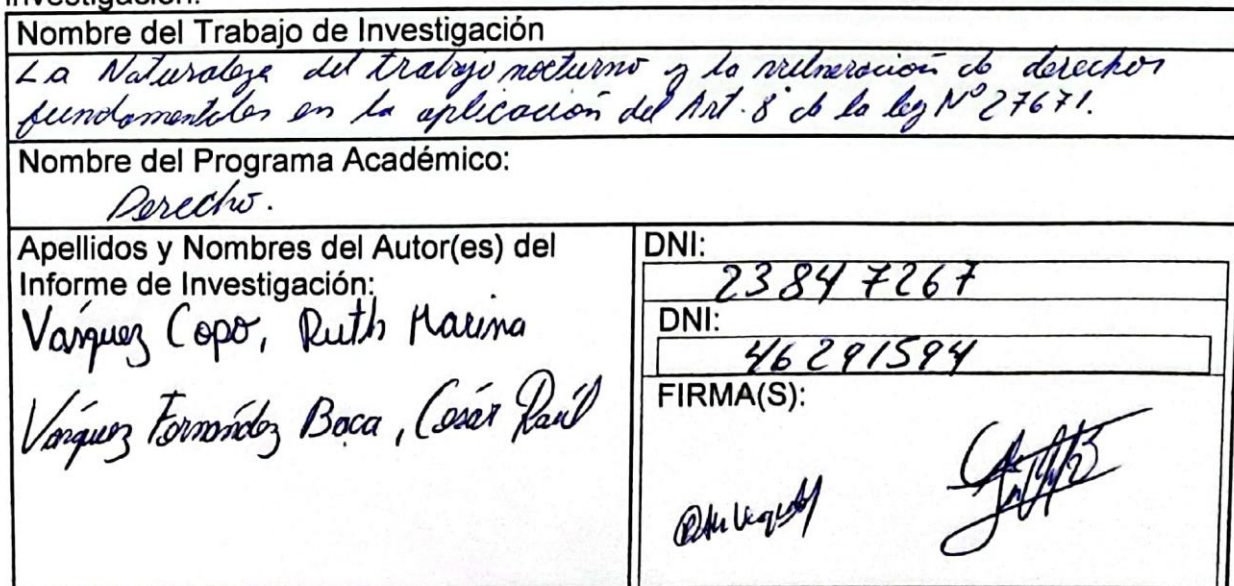 investigación.
Nombre del Trabajo de Investigación
La Naturaleza del trabajo nocturno y la vulneración de derechos
fundamentales en la aplicación del Art. 8° de la ley N° 27671.
Nombre del Programa Académico:
Derecho.
Apellidos y Nombres del Autor(es) del
Informe de Investigación:
Vásquez Copo, Ruth Marina
Vásquez Fernández Baca, César Raúl
DNI:
23847267
DNI:
46291594
FIRMA(S):